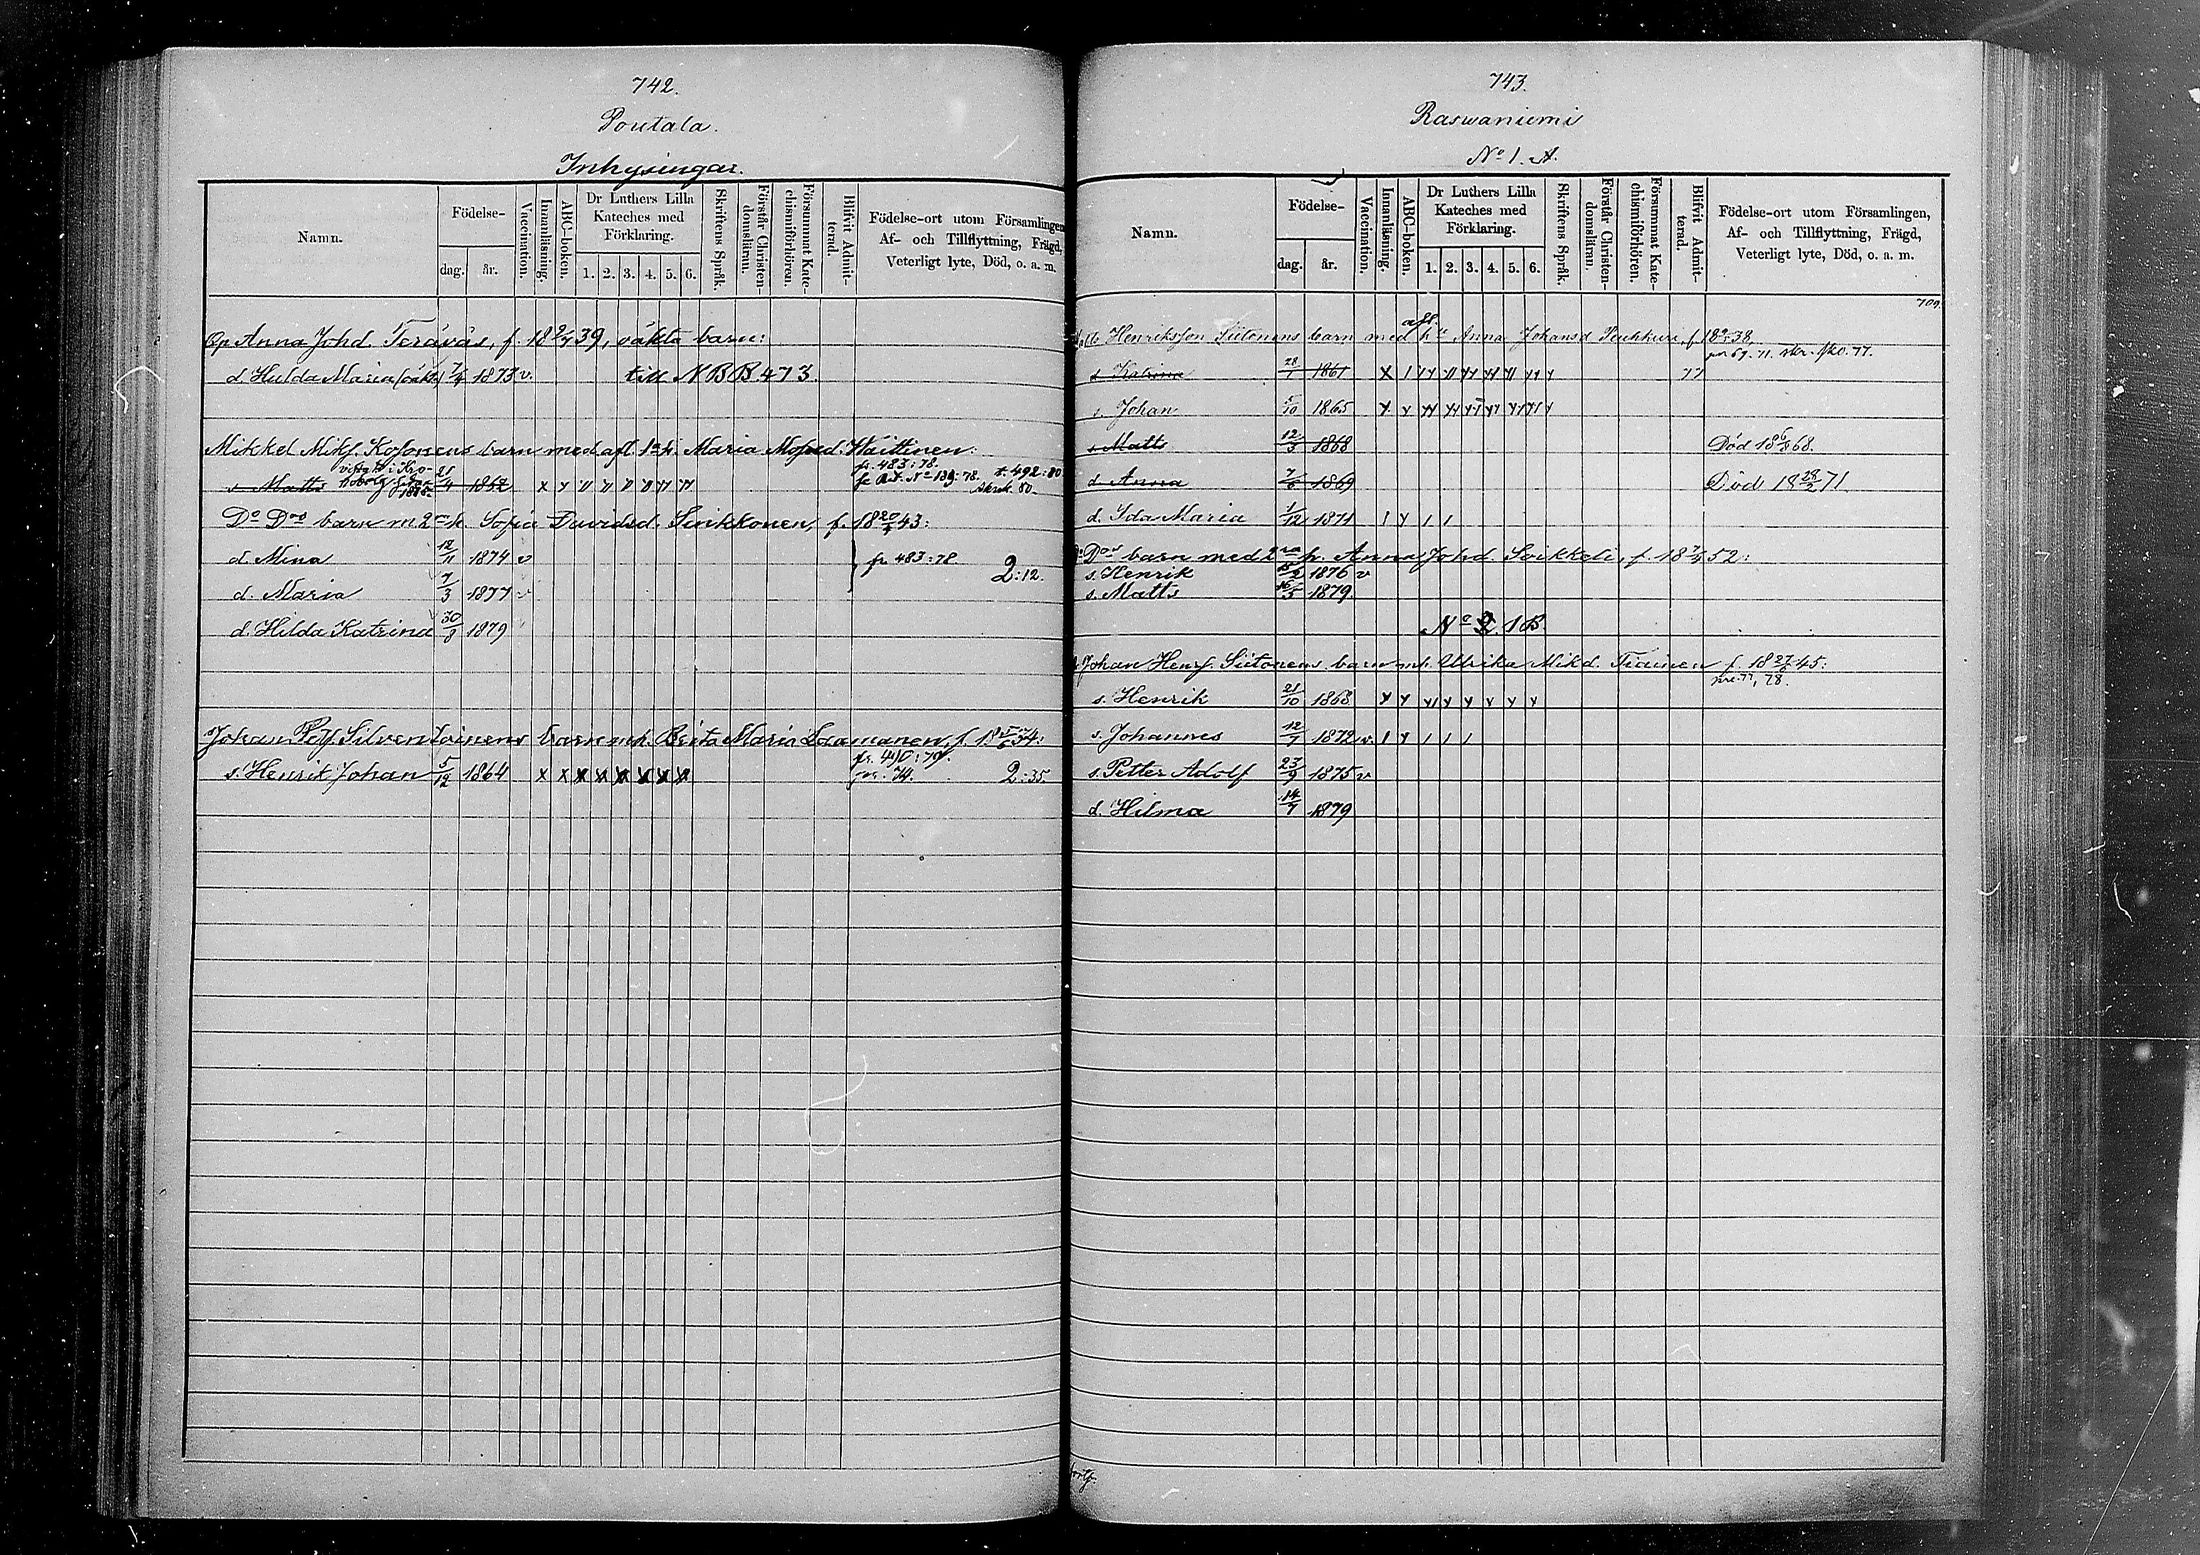 742.
Poutala.
Inhysingar.
Namn.
Födelse-
dag.
år.
Vaccination.
Innanläsning.
ABC-boken.
Dr Luthers Lilla Kateches med Förklaring.
1. 2. 3. 4. 5. 6.
Skriftens Språk.
Förstår Christen-domsläran.
Försummat Kate-chismiförhören.
Blifvit Admit-terad.
Födelse-ort utom Församlingen, Af- och Tillflyttning, Frägd, Veterligt lyte, Död, o. a. m.
Anna Johd. Teräväs, f. 18 39, oäkta barn:
d. Hulda Maria (oäkta) 1873 v. till NBB 473.
Mikkel Mikf. Kosonens barn med afl. 1a h. Maria Mosesd. Wäittinen:
fr. 483:78.
s. Matts 21/4 1862 x fr Bet. No 139:78. t. 492:80
Do Dos barn m. 2n h. Sofia Davidsd. Sirkkonen, f. 18 43:
d. Mina 12/11 1874 v fr 483:78 2:12.
d. Maria 7/3 1877 v
d. Hilda Katrina 30/8 1879
Johan Petf. Silventoinens barn m. h. Brita Maria Laamanen, f. 18 34:
fr. 490:79.
s. Henrik Johan 5/12 1864 x x x x x x x x 2:35
743.
Raswaniemi
No 1. A.
Namn.
Födelse-
dag.
år.
Vaccination.
Innanläsning.
ABC-boken.
Dr Luthers Lilla Kateches med Förklaring.
1. 2. 3. 4. 5. 6.
Skriftens Språk.
Förstår Christen-domsläran.
Försummat Kate-chismiförhören.
Blifvit Admit-terad.
Födelse-ort utom Församlingen, Af- och Tillflyttning, Frägd, Veterligt lyte, Död, o. a. m.
709.
afl.
Henriksson Siitonens barn med hu Anna Johansd Peuhkuri, f 18 38,
s. Katrina 28/1 1861 77
s. Johan 5/10 1865
s. Matts 12/3 1868 Död 18 68.
d. Anna 7/6 1869 Död 18 28/2 71.
d. Ida Maria 1/12 1871
Do Dos barn med 2ra h. Anna Johd. Soikkeli, f. 18 52:
s. Henrik 15/2 1876 v
s. Matts 16/5 1879.
No 1 B.
Johan Henrs. Siitonens barn m. h. Ulrika Mikd. Tiainen f. 18 27/6 45:
s. Henrik 21/10 1868
s. Johannes 12/7 1872 v.
s. Petter Adolf 23/9 1875 v
d. Hilma 14/7 1879